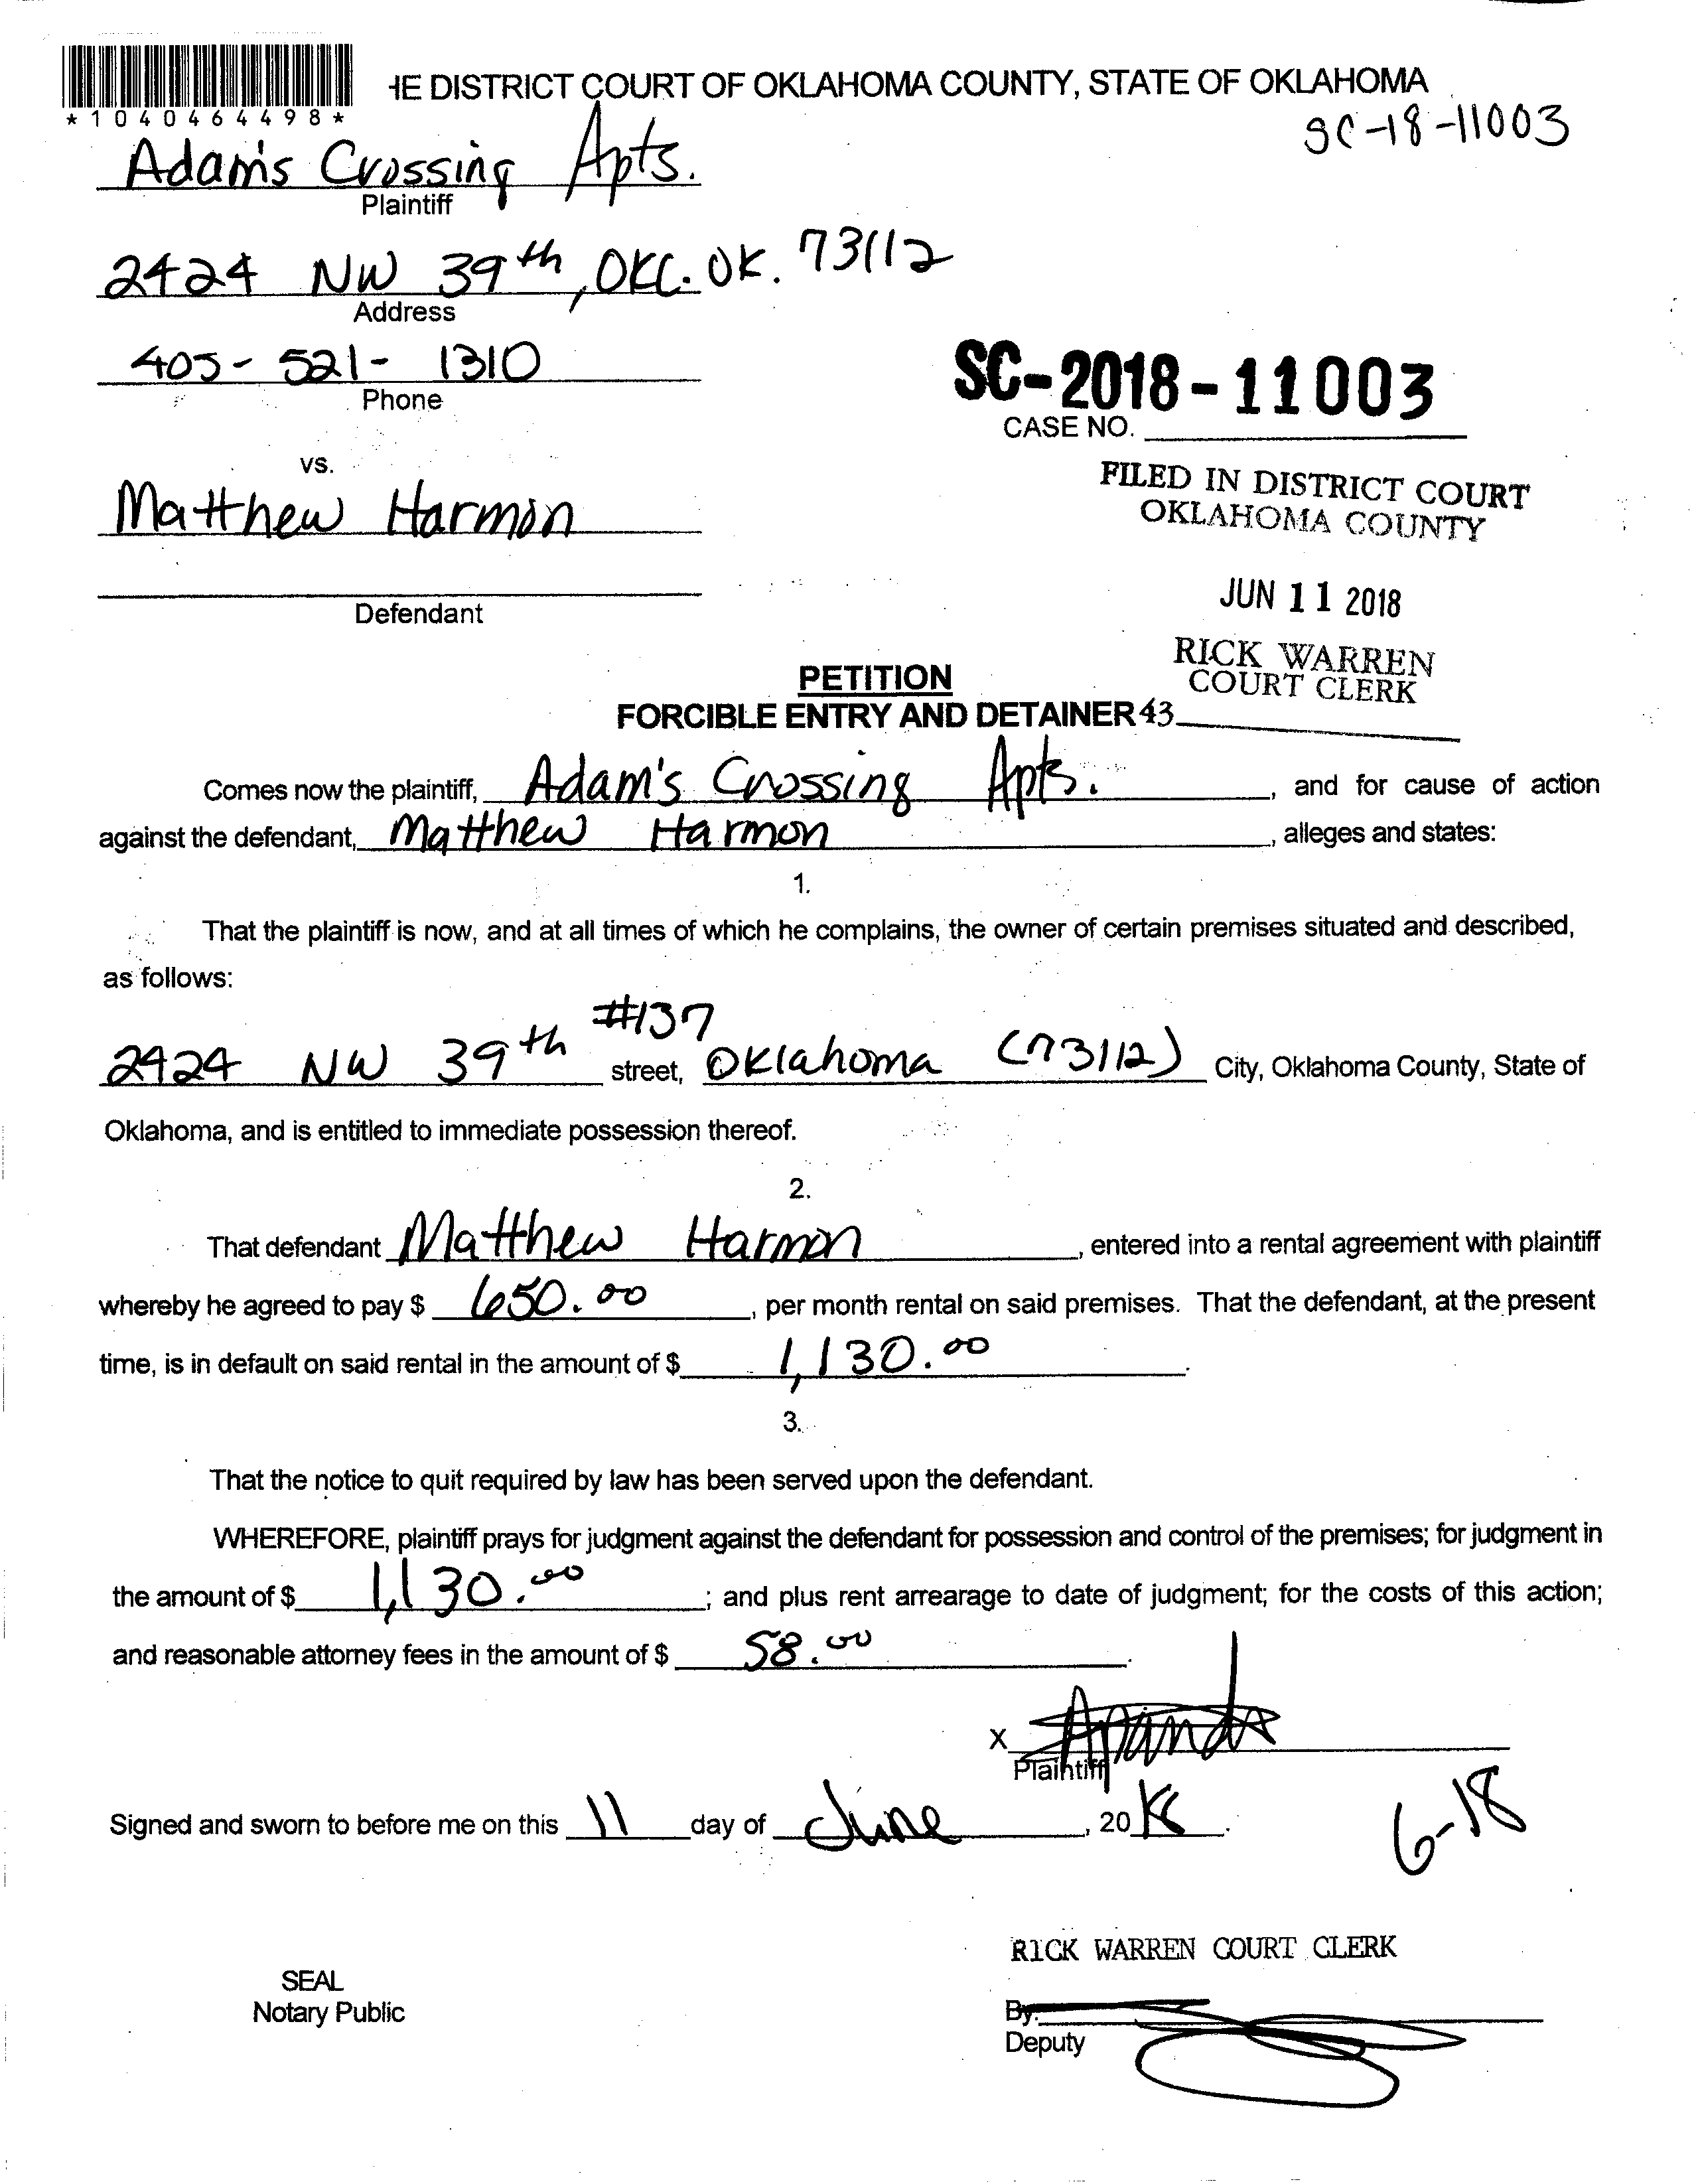 HE DISTRICT COURT OF OKLAHOMA COUNTY, STATE OF OKLAHOMA
*1040464498*
SC-18-11003
Adam's Crossing Apts.
Plaintiff
2424 NW 39th, OKC. OK. 73112
Address
405-521-1310
Phone
SC-2018-11003
CASE NO.
vs.
FILED IN DISTRICT COURT
OKLAHOMA COUNTY
Matthew Harmon
JUN 11 2018
Defendant
RICK WARREN
COURT CLERK
PETITION
FORCIBLE ENTRY AND DETAINER 43
Comes now the plaintiff, Adam's Crossing Apts., and for cause of action
against the defendant, Matthew Harmon, alleges and states:
1.
That the plaintiff is now, and at all times of which he complains, the owner of certain premises situated and described,
as follows:
#137
2424 NW 39th street, Oklahoma (73112) City, Oklahoma County, State of
Oklahoma, and is entitled to immediate possession thereof.
2.
That defendant Matthew Harmon, entered into a rental agreement with plaintiff
whereby he agreed to pay $ 650.00, per month rental on said premises. That the defendant, at the present
time, is in default on said rental in the amount of $ 1,130.00.
3.
That the notice to quit required by law has been served upon the defendant.
WHEREFORE, plaintiff prays for judgment against the defendant for possession and control of the premises; for judgment in
the amount of $ 1,130.00; and plus rent arrearage to date of judgment; for the costs of this action;
and reasonable attorney fees in the amount of $ 58.00.
X
Plaintiff
Signed and sworn to before me on this 11 day of June, 2018.
6-18
RICK WARREN COURT CLERK
SEAL
Notary Public
By:
Deputy